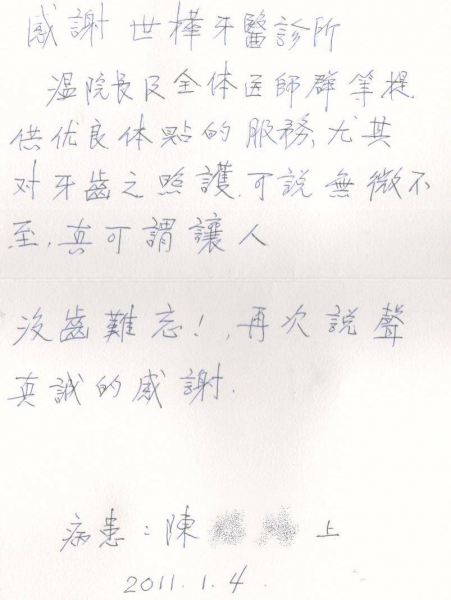 感謝 世樺牙醫診所
溫院長及全体医師群等提
供优良体點的服務,尤其
对牙齒之照護.可說無微不
至,真可謂讓人
沒齒難忘!,再次說聲
真誠的感謝.
病患:陳 上
2011.1.4